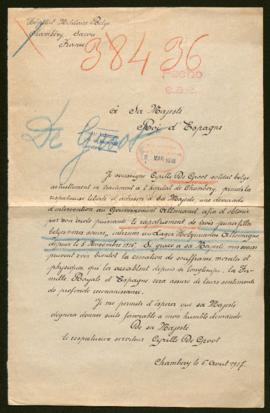 Hôpital Militaire Belge
Chambéry Savoie
France
38436
FECHO
De Groot
A Sa Majesté
Roi d'Espagne
Je soussigné Cyrille De Groot soldat belge
actuellement en traitement à l'hôpital de Chambéry, prends la
respectueuse liberté d'adresser à Sa Majesté, une demande
d'intervention au Gouvernement Allemand, afin d'obtenir
le rapatriement de trois jeunes filles
belges mes sœurs, internées au Lager Holzminden Allemagne
depuis le 8 Novembre 1915. Si grâce à Sa Majesté mes sœurs
peuvent voir bientôt la cessation de souffrances morales et
physiques qui les accablent depuis si longtemps, la Fa-
mille Royale d'Espagne sera assurée de leurs sentiments
de profonde reconnaissance.
Je me permets d'espérer que sa Majesté
daignera donner suite favorable à mon humble demande.
De Sa Majesté
le respectueux serviteur Cyrille De Groot
Chambéry le 6 Avril 1917.